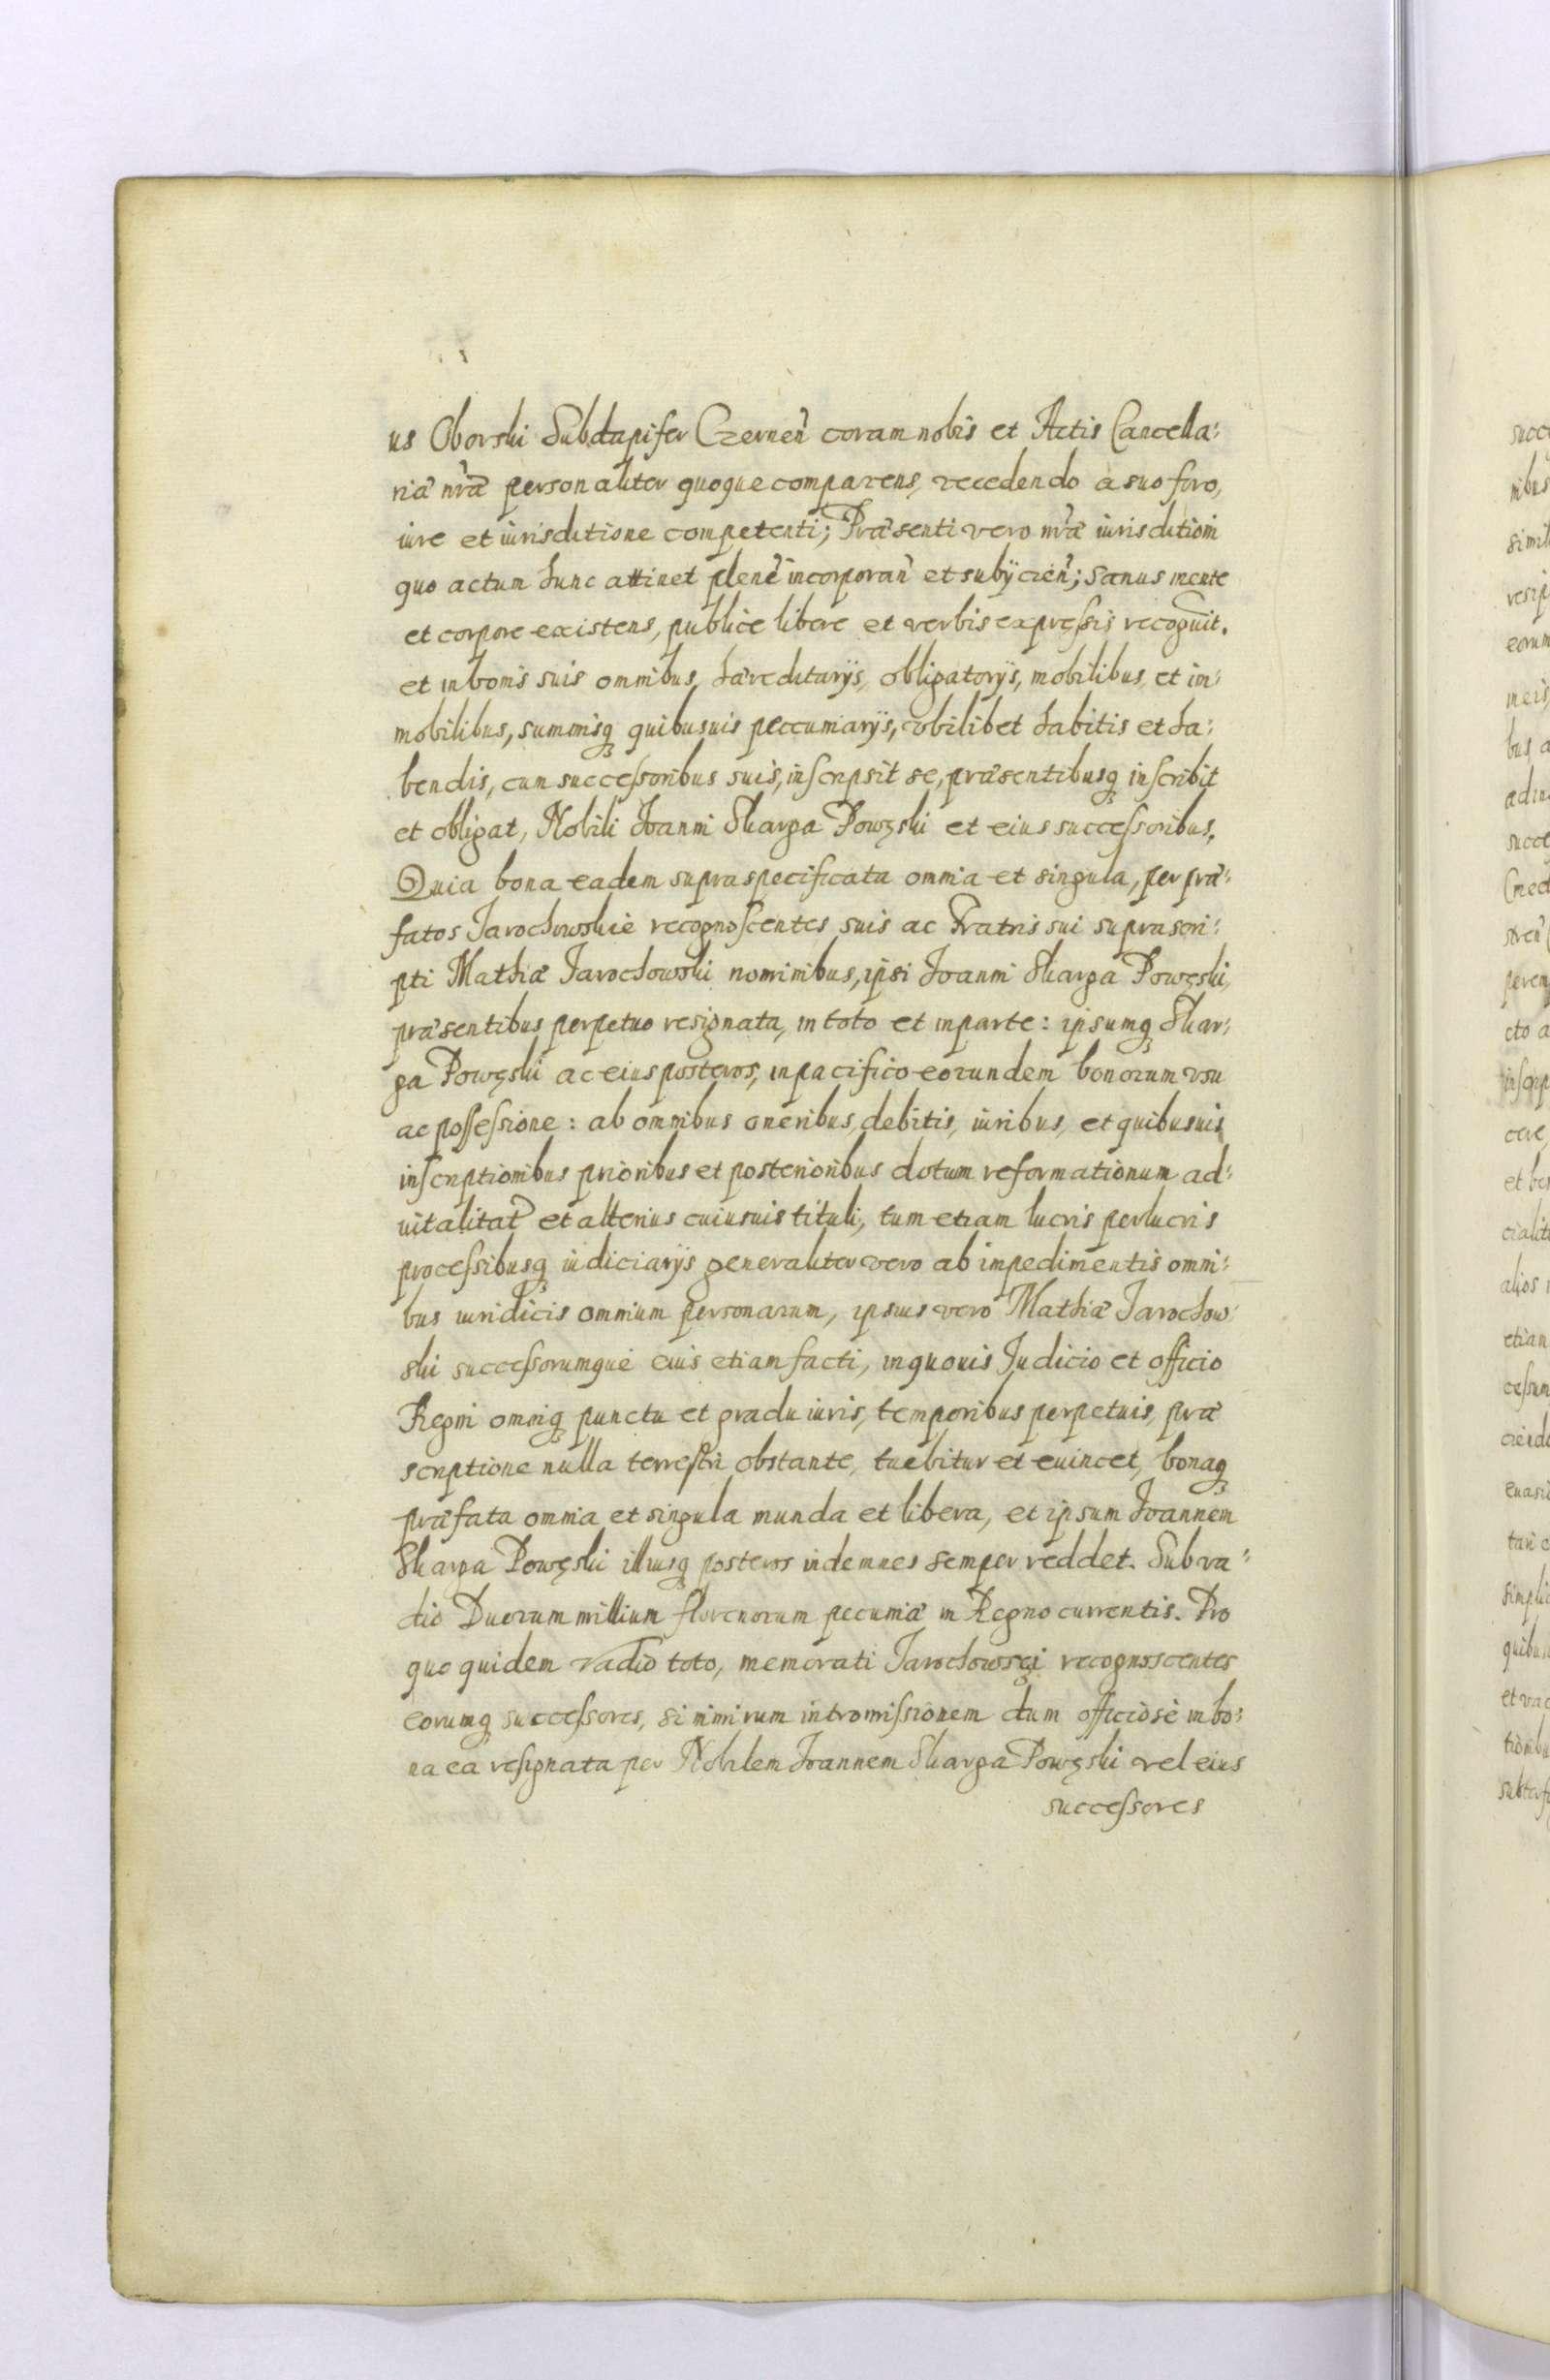 us Oborski Subdapifer Czernen̄ coram nobis et Actis Cancella:
riæ nr̄æ personaliter quoque comparens, recedendo à suo foro,
iure et iurisditione competenti; Præsenti vero nr̄æ iurisditioni
quo actum hunc attinet plenè incorporan̄ et subÿcien̄; sanus mente
et corpore existens, publice libere et verbis expreſsis recognuit.
et in bonis suis omnibus, hæreditarÿs, obligatorÿs, mobilibus, et im:
mobilibus, summisq quibusuis peccuniarÿs, vbilibet habitis et ha:
bendis, cum succeſsoribus suis, inſcripsit se, præsentibusq inſcribit
et obligat, Nobili Ioanni Skarga Powęski et eius succeſsoribus.
Quia bona eadem supraspecificata omnia et singula, per præ:
fatos Jarochowskie recognoſcentes suis ac Fratris sui suprascri:
pti Mathiæ Jarochowski nominibus, ipsi Ioanni Skarga Powęski,
præsentibus perpetuo resignata, in toto et in parte: ipsumq Skar:
ga Powęski ac eius posteros, in pacifico eorundem bonorum vsu
ac poſſeſsione: ab omnibus oneribus, debitis, iuribus, et quibusuis
inſcriptionibus prioribus et posterioribus dotum reformationum ad:
uitalitat̄ et alterius cuiusuis tituli, tum etiam lucris perlucris
proceſsibusq iudiciarÿs generaliter vero ab impedimentis omni:
bus iuridicis omnium personarum, ipsius vero Mathiæ Jarochow:
ski succeſsorumque eius etiam facti, in quouis Judicio et officio
Regni omniq punctu et gradu iuris, temporibus perpetuis, præ
scriptione nulla terreſtri obstante, tuebitur et euincet, bonaq
præfata omnia et singula munda et libera, et ipsum Ioannem
Skarga Powęski illiusq posteros indemnes semper reddet. Sub va:
dio Duorum millium florenorum pecuniæ in Regno currentis. Pro
quo quidem vadio toto, memorati Jarochowsci recognoscentes
eorumq succeſsores, si nimirum intromiſsionem dum officiosè in bo:
na ea reſignata per Nobilem Ioannem Skarga Powęski vel eius
succeſsores